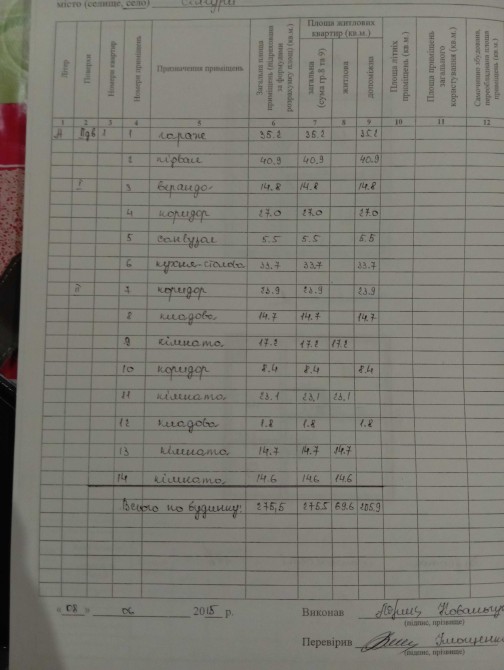 місто (селище, село)
Літер
Поверхи
Номери квартир
Номери приміщень
Призначення приміщень
Загальна площа приміщень (підрахована за формулами розрахунку площі) (кв.м.)
Площа житлових квартир (кв.м.)
загальна (сума гр.8 та 9)
житлова
допоміжна
Площа літніх приміщень (кв.м.)
Площа приміщень загального користування (кв.м.)
1 2 3 4 5 6 7 8 9 10 11 12
1 гараж 35.2 35.2 35.2
2 підвал 40.9 40.9 40.9
I 3 веранда 14.8 14.8 14.8
4 коридор 27.0 27.0 27.0
5 санвузол 5.5 5.5 5.5
6 кухня-столова 33.7 33.7 33.7
II 7 коридор 23.9 23.9 23.9
8 кладова 14.7 14.7 14.7
9 кімната 17.2 17.2 17.2
10 коридор 8.4 8.4 8.4
11 кімната 23.1 23.1 23.1
12 кладова 1.8 1.8 1.8
13 кімната 14.7 14.7 14.7
14 кімната 14.6 14.6 14.6
Всього по будинку: 275,5 275.5 69.6 205.9
« 08 » 06 2015 р.
Виконав
(підпис, прізвище)
Перевірив
(підпис, прізвище)